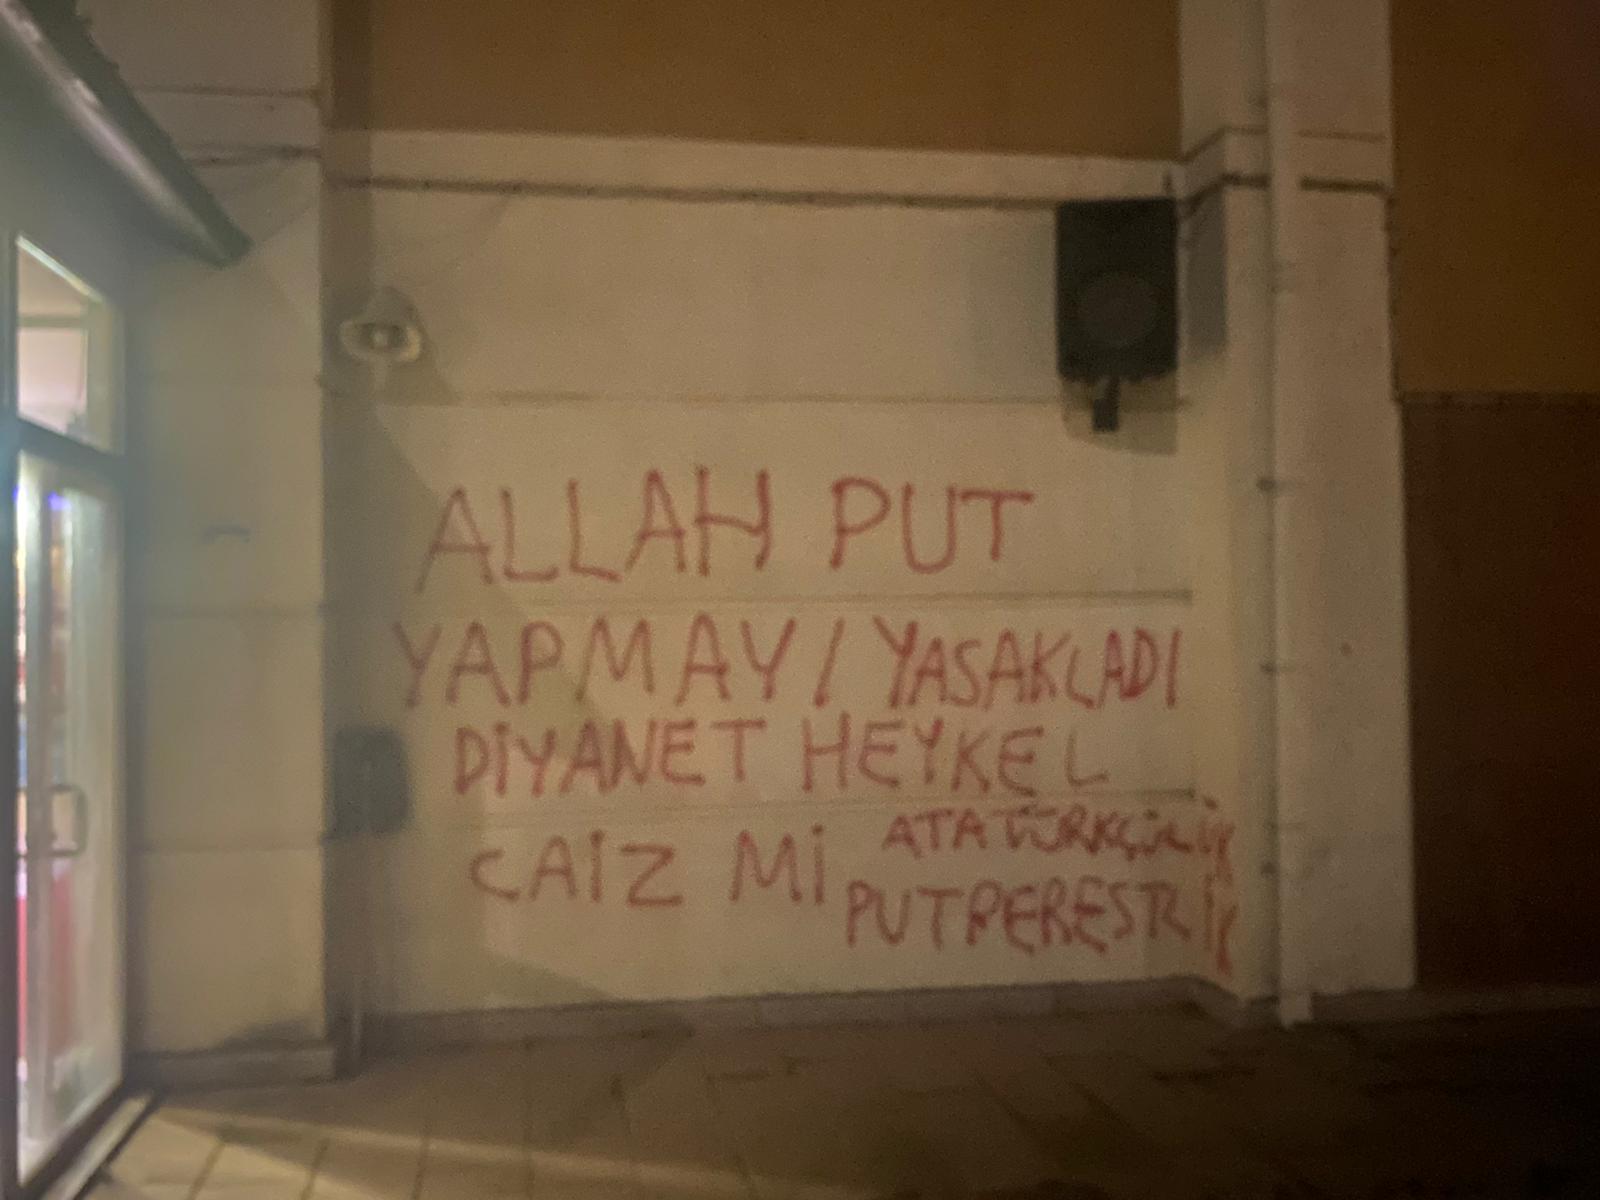 ALLAH PUT
YAPMAYI YASAKLADI
DİYANET HEYKEL
CAİZ Mİ
ATATÜRKÇÜLÜK
PUTPERESTLİK